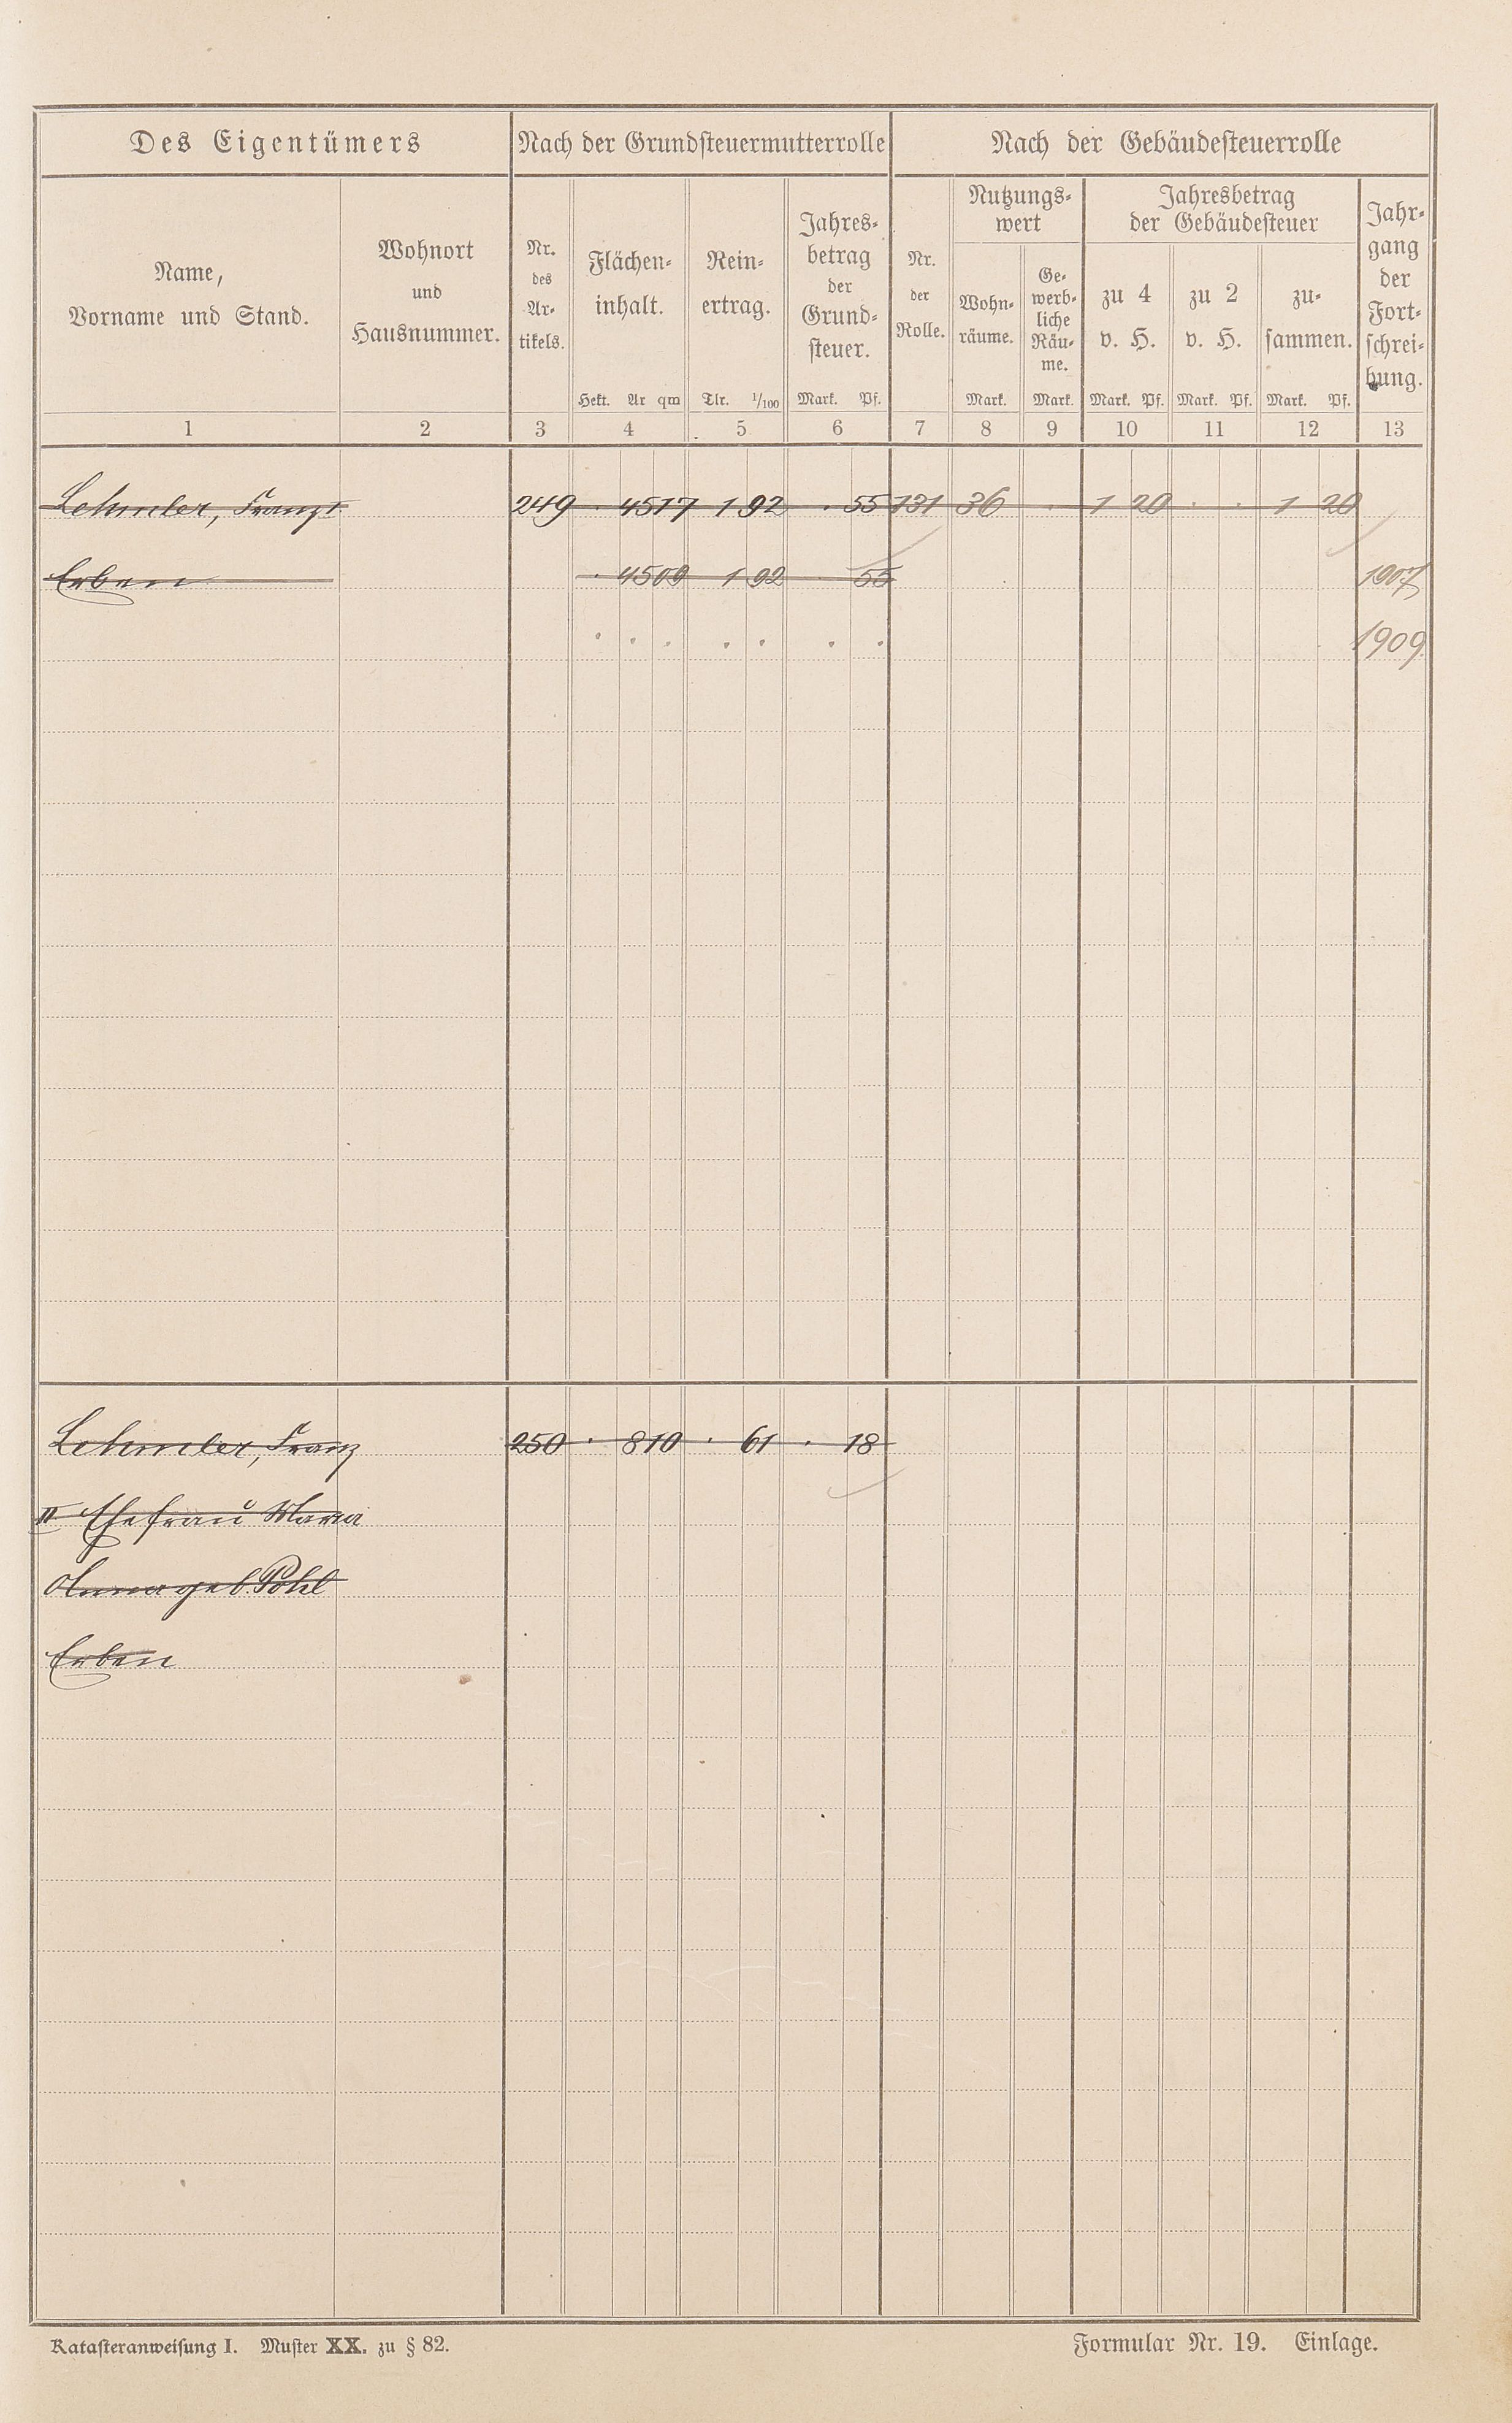 Des Eigentümers Nach der Grundsteuermutterrolle Nach der Gebäudesteuerrolle
Name,
Vorname und Stand.
Wohnort
und
Hausnummer.
Nr.
des
Ar-
tikels.
Flächen-
inhalt.
Hekt. Ar qm
Rein-
ertrag.
Tlr. 1/100
Jahres-
betrag
der
Grund-
steuer.
Mark. Pf.
Nr.
der
Rolle.
Nutzungs-
wert
Wohn-
räume.
Mark.
Ge-
werb-
liche
Räu-
me.
Mark.
Jahresbetrag
der Gebäudesteuer
zu 4
v. H.
Mark. Pf.
zu 2
v. H.
Mark. Pf.
zu-
sammen.
Mark. Pf.
Jahr-
gang
der
Fort-
schrei-
bung.
1 2 3 4 5 6 7 8 9 10 11 12 13
Lehmler, Franz 249 . 45 17 1 92 . 55 131 36 . 1 20 . . 1 20
Erben . 45 09 1 92 . 55 1907
. . . . . . . 1909
Lehmler, Franz 250 . 8 10 . 61 . 18
II Ehefrau Maria
Anna geb. Pohl
Erben
Katasteranweisung I. Muster XX. zu § 82. Formular Nr. 19. Einlage.